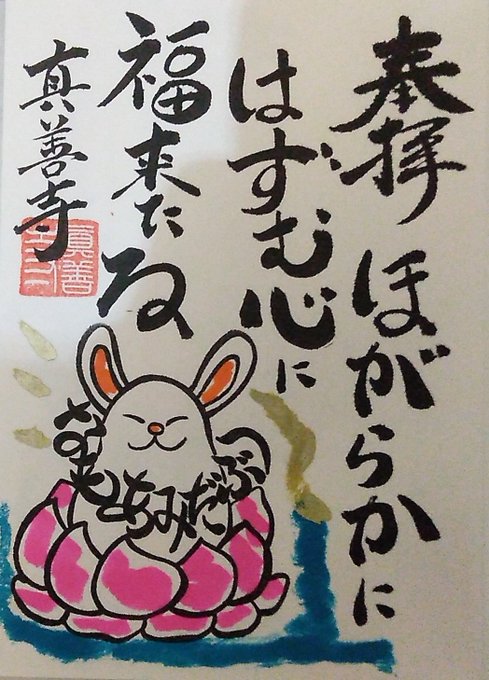 奉拝 ほがらかに
はずむ心に
福来たる
真善寺
なもあみだぶつ